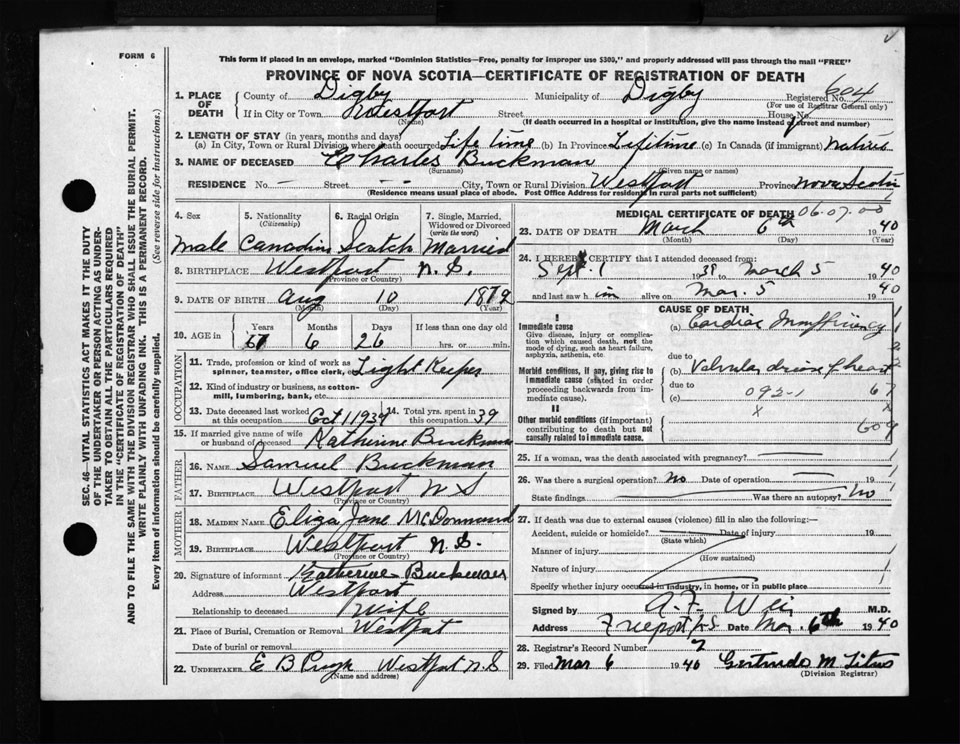 FORM 6
This form if placed in an envelope, marked "Dominion Statistics—Free, penalty for improper use $300," and properly addressed will pass through the mail "FREE"
PROVINCE OF NOVA SCOTIA—CERTIFICATE OF REGISTRATION OF DEATH
SEC. 46—VITAL STATISTICS ACT MAKES IT THE DUTY
OF THE UNDERTAKER OR PERSON ACTING AS UNDER-
TAKER TO OBTAIN ALL THE PARTICULARS REQUIRED
IN THE "CERTIFICATE OF REGISTRATION OF DEATH"
AND TO FILE THE SAME WITH THE DIVISION REGISTRAR WHO SHALL ISSUE THE BURIAL PERMIT.
WRITE PLAINLY WITH UNFADING INK. THIS IS A PERMANENT RECORD.
Every item of information should be carefully supplied. (See reverse side for instructions.)
1. PLACE OF DEATH County of Digby Municipality of Digby Registered No. 604
(For use of Registrar General only)
If in City or Town Westport Street House No.
(Name) (If death occurred in a hospital or institution, give the name instead of street and number)
2. LENGTH OF STAY (in years, months and days)
(a) In City, Town or Rural Division where death occurred Life time (b) In Province Lifetime (c) In Canada (if immigrant) Native
3. NAME OF DECEASED Charles Buckman
(Surname) (Given name or names)
RESIDENCE No. — Street - - City, Town or Rural Division Westport Province Nova Scotia
(Residence means usual place of abode. Post Office Address for Residents in rural parts not sufficient)
4. Sex 5. Nationality (Citizenship) 6. Racial Origin 7. Single, Married, Widowed or Divorced (write the word)
Male Canadian Scotch Married
8. BIRTHPLACE Westport N.S.
(Province or Country)
9. DATE OF BIRTH Aug 10 1872
(Month) (Day)
10. AGE in Years Months Days If less than one day old
67 6 26 hrs. or min.
OCCUPATION
11. Trade, profession or kind of work as spinner, teamster, office clerk, etc. Light Keeper
12. Kind of industry or business, as cotton-mill, lumbering, bank, etc.
13. Date deceased last worked at this occupation Oct 1 1939 14. Total yrs. spent in 39
15. If married give name of wife or husband of deceased Katherine Buckman
FATHER
16. NAME Samuel Buckman
17. BIRTHPLACE Westport N S
(Province or Country)
MOTHER
18. MAIDEN NAME Eliza Jane McDormand
19. BIRTHPLACE Westport N.S.
(Province or Country)
20. Signature of informant Katherine Buckman
Address Westport
Relationship to deceased Wife
21. Place of Burial, Cremation or Removal Westport
Date of burial or removal
22. UNDERTAKER E B Pugh Westport N.S
(Name and address)
MEDICAL CERTIFICATE OF DEATH 06.07.00
23. DATE OF DEATH March 6th 1940
(Month) (Day) (Year)
24. I HEREBY CERTIFY that I attended deceased from:
Sept. 1 1939 to March 5 1940
and last saw h im alive on Mar. 5 1940
CAUSE OF DEATH
I
Immediate cause
Give disease, injury or complication which caused death, not the mode of dying, such as heart failure, asphyxia, asthenia, etc.
(a) Cardiac Insufficiency
due to
Morbid conditions, if any, giving rise to immediate cause (stated in order proceeding backwards from immediate cause).
(b) Valvular disease of heart
due to
(c) 092-1 67
x
II
Other morbid conditions (if important) contributing to death but not causally related to immediate cause.
609
25. If a woman, was the death associated with pregnancy?
26. Was there a surgical operation? No Date of operation
State findings Was there an autopsy? No
27. If death was due to external causes (violence) fill in also the following:—
Accident, suicide or homicide? Date of injury 19
(State which)
Manner of injury
(How sustained)
Nature of injury
Specify whether injury occurred in industry, in home, or in public place
Signed by A.F. Weir M.D.
Address Freeport N.S. Date Mar. 6th 1940
28. Registrar's Record Number 2
29. Filed Mar 6 1940 Gertrude M Titus
(Division Registrar)